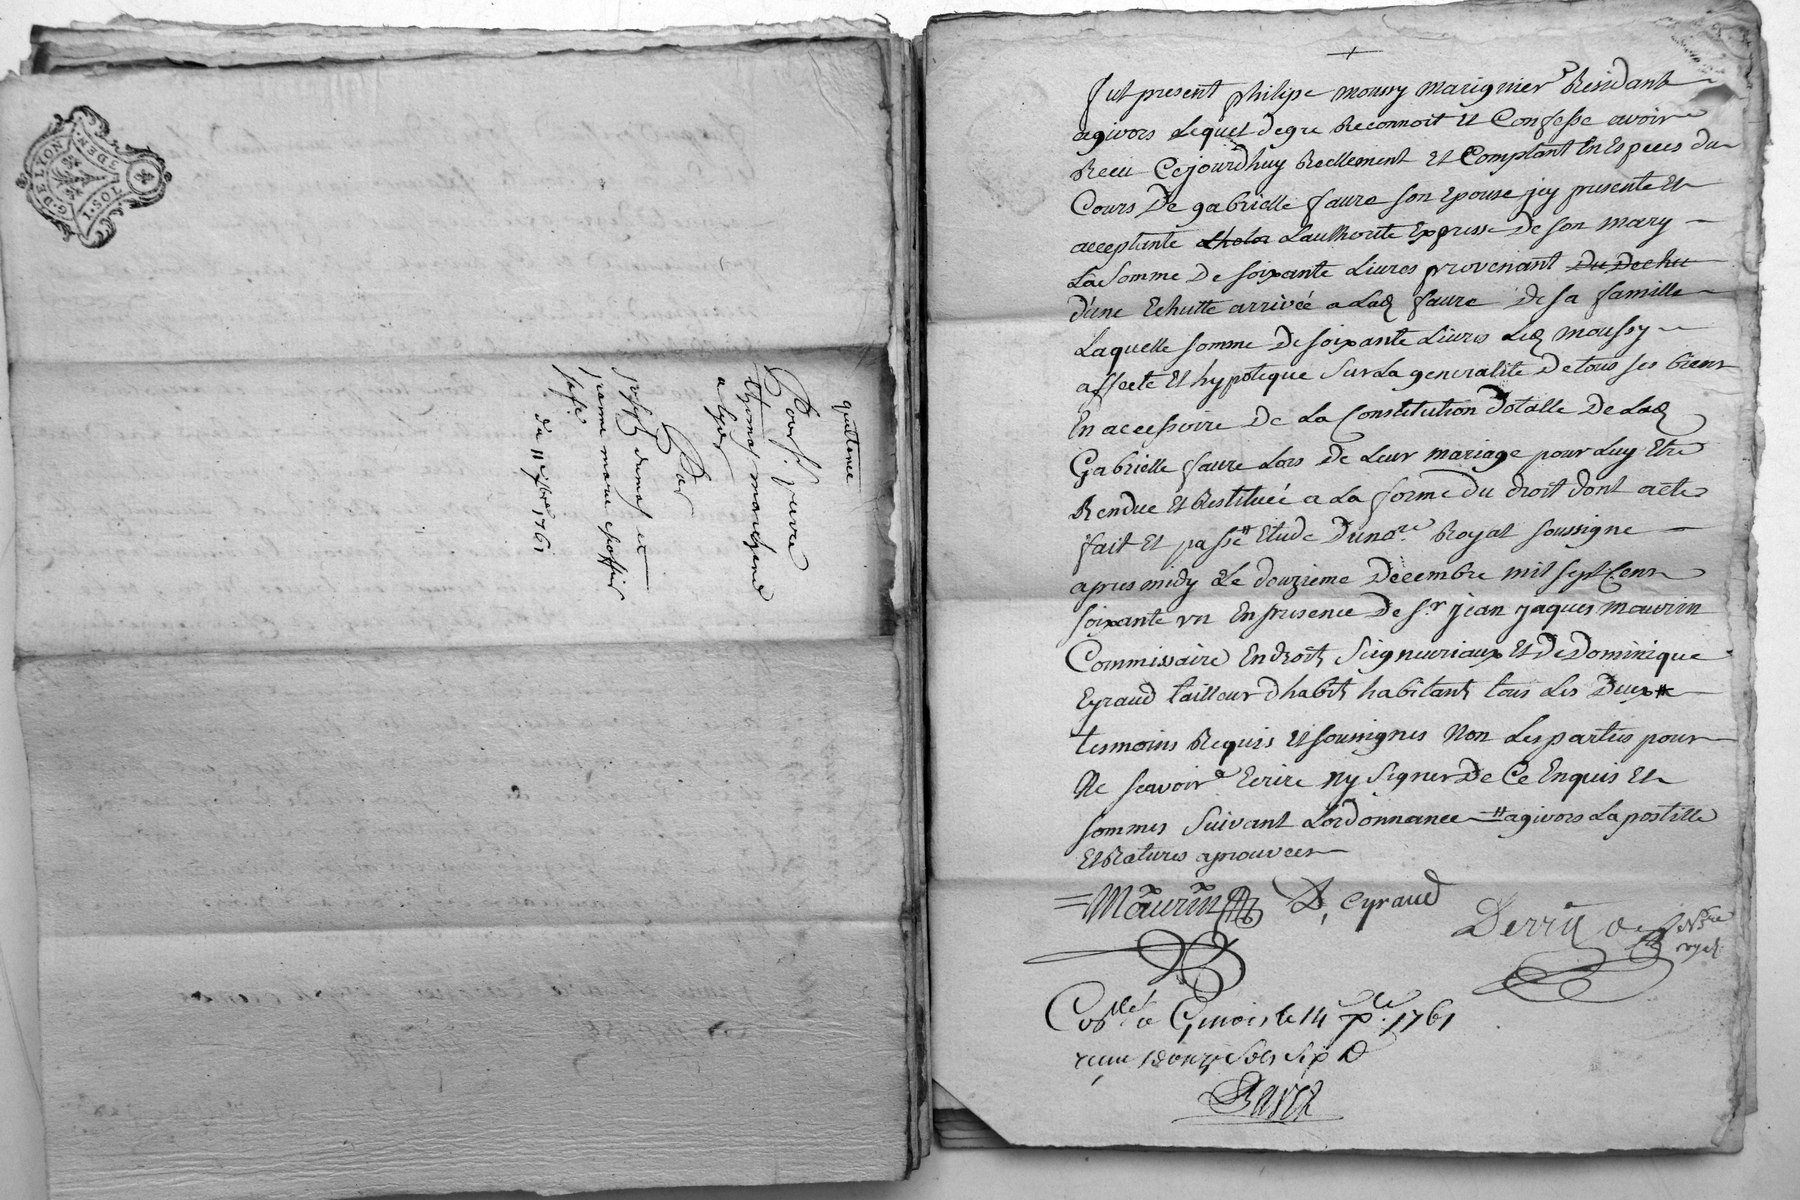 G. DE LYON.
3 DEN.
1. SOL
quittance
Pour Sr. veuve
thomas marchand
a lyon
Par
joseph dumas et
jeanne marie
du 11e xbre 1761
+
Fut present philipe moussy marignier Residant
agivors Lequel degre Reconnoit Et Confesse avoir
Receu Cejourdhuy Reellement Et Comptant En Especes du
Cours De gabrielle faure son Epouse icy presente Et
acceptante Lauthorite Expresse De son mary
La Somme De soixante Livres provenant Du Dechu
d'une Echutte arrivée a Lad faure De sa famille
Laquelle somme De soixante Livres Led moussy
affecte Et hypoteque Sur La generalité De tous ses biens
En accessoire De La Constitution Dotalle De Lad
Gabrielle faure Lors De Leur mariage pour Luy Etre
Rendue Et Restituée a La forme Du droit dont acte
fait Et passé # Etude Du nore. Royal soussigne
apres midy Le douzieme Decembre mil sept Cent
soixante un En presence De sr. jean jaques maurin
Commissaire En droits Seigneuriaux Et De Dominique
Eyraud tailleur d'habits habitants tous Les Deux #
tesmoins Requis Et soussignes Non Les parties pour
Ne sçavoir Ecrire Ny Signer De Ce Enquis Et
sommes Suivant Lordonnance # agivors La postille
Et Ratures aprouvees
= Maurin D, eyraud
Nre
royal
Conllé a Givors le 14 xbre. 1761
recu douze sols six D